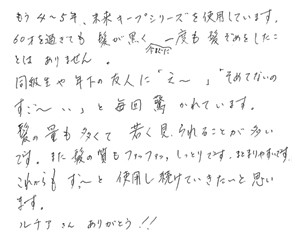 もう4～5年、未来キープシリーズを使用しています。
60才を過ぎても髪が黒く今まで一度も髪ぞめをしたことはありません。
同級生や年下の友人に「え～」「そめてないの
すご～い」と毎回驚かれています。
髪の量も多くて若く見られることが多い
です。また髪の質もファファッ、しっとりです。まとまりやすいです。
これからもず～と使用し続けていきたいと思い
ます。
ルチアさんありがとう!!